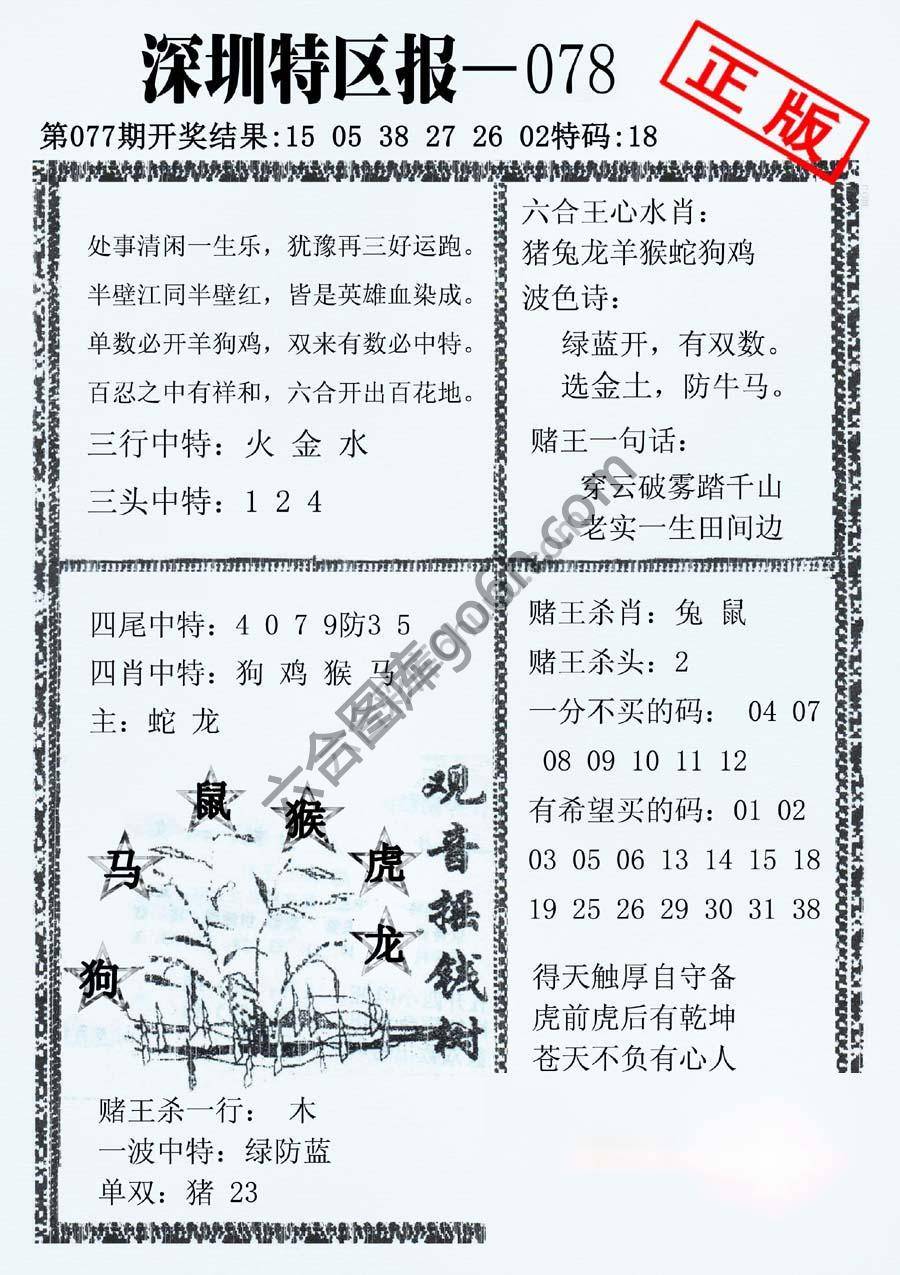 深圳特区报—078
正版
第077期开奖结果:15 05 38 27 26 02特码:18
处事清闲一生乐，犹豫再三好运跑。
半壁江同半壁红，皆是英雄血染成。
单数必开羊狗鸡，双来有数必中特。
百忍之中有祥和，六合开出百花地。
三行中特：火 金 水
三头中特：1 2 4
六合王心水肖：
猪兔龙羊猴蛇狗鸡
波色诗：
绿蓝开，有双数。
选金土，防牛马。
赌王一句话：
穿云破雾踏千山
老实一生田间边
四尾中特：4 0 7 9防3 5
四肖中特：狗 鸡 猴 马
主：蛇 龙
鼠
猴
马
虎
龙
狗
观音摇钱树
赌王杀一行： 木
一波中特：绿防蓝
单双：猪 23
赌王杀肖：兔 鼠
赌王杀头：2
一分不买的码： 04 07
08 09 10 11 12
有希望买的码：01 02
03 05 06 13 14 15 18
19 25 26 29 30 31 38
得天触厚自守备
虎前虎后有乾坤
苍天不负有心人
六合图库go6h.com